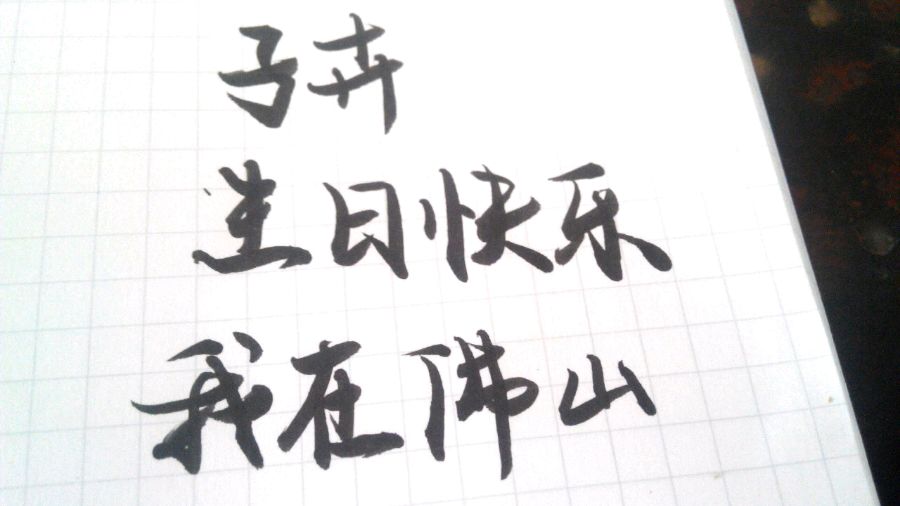 子卉
生日快乐
我在佛山